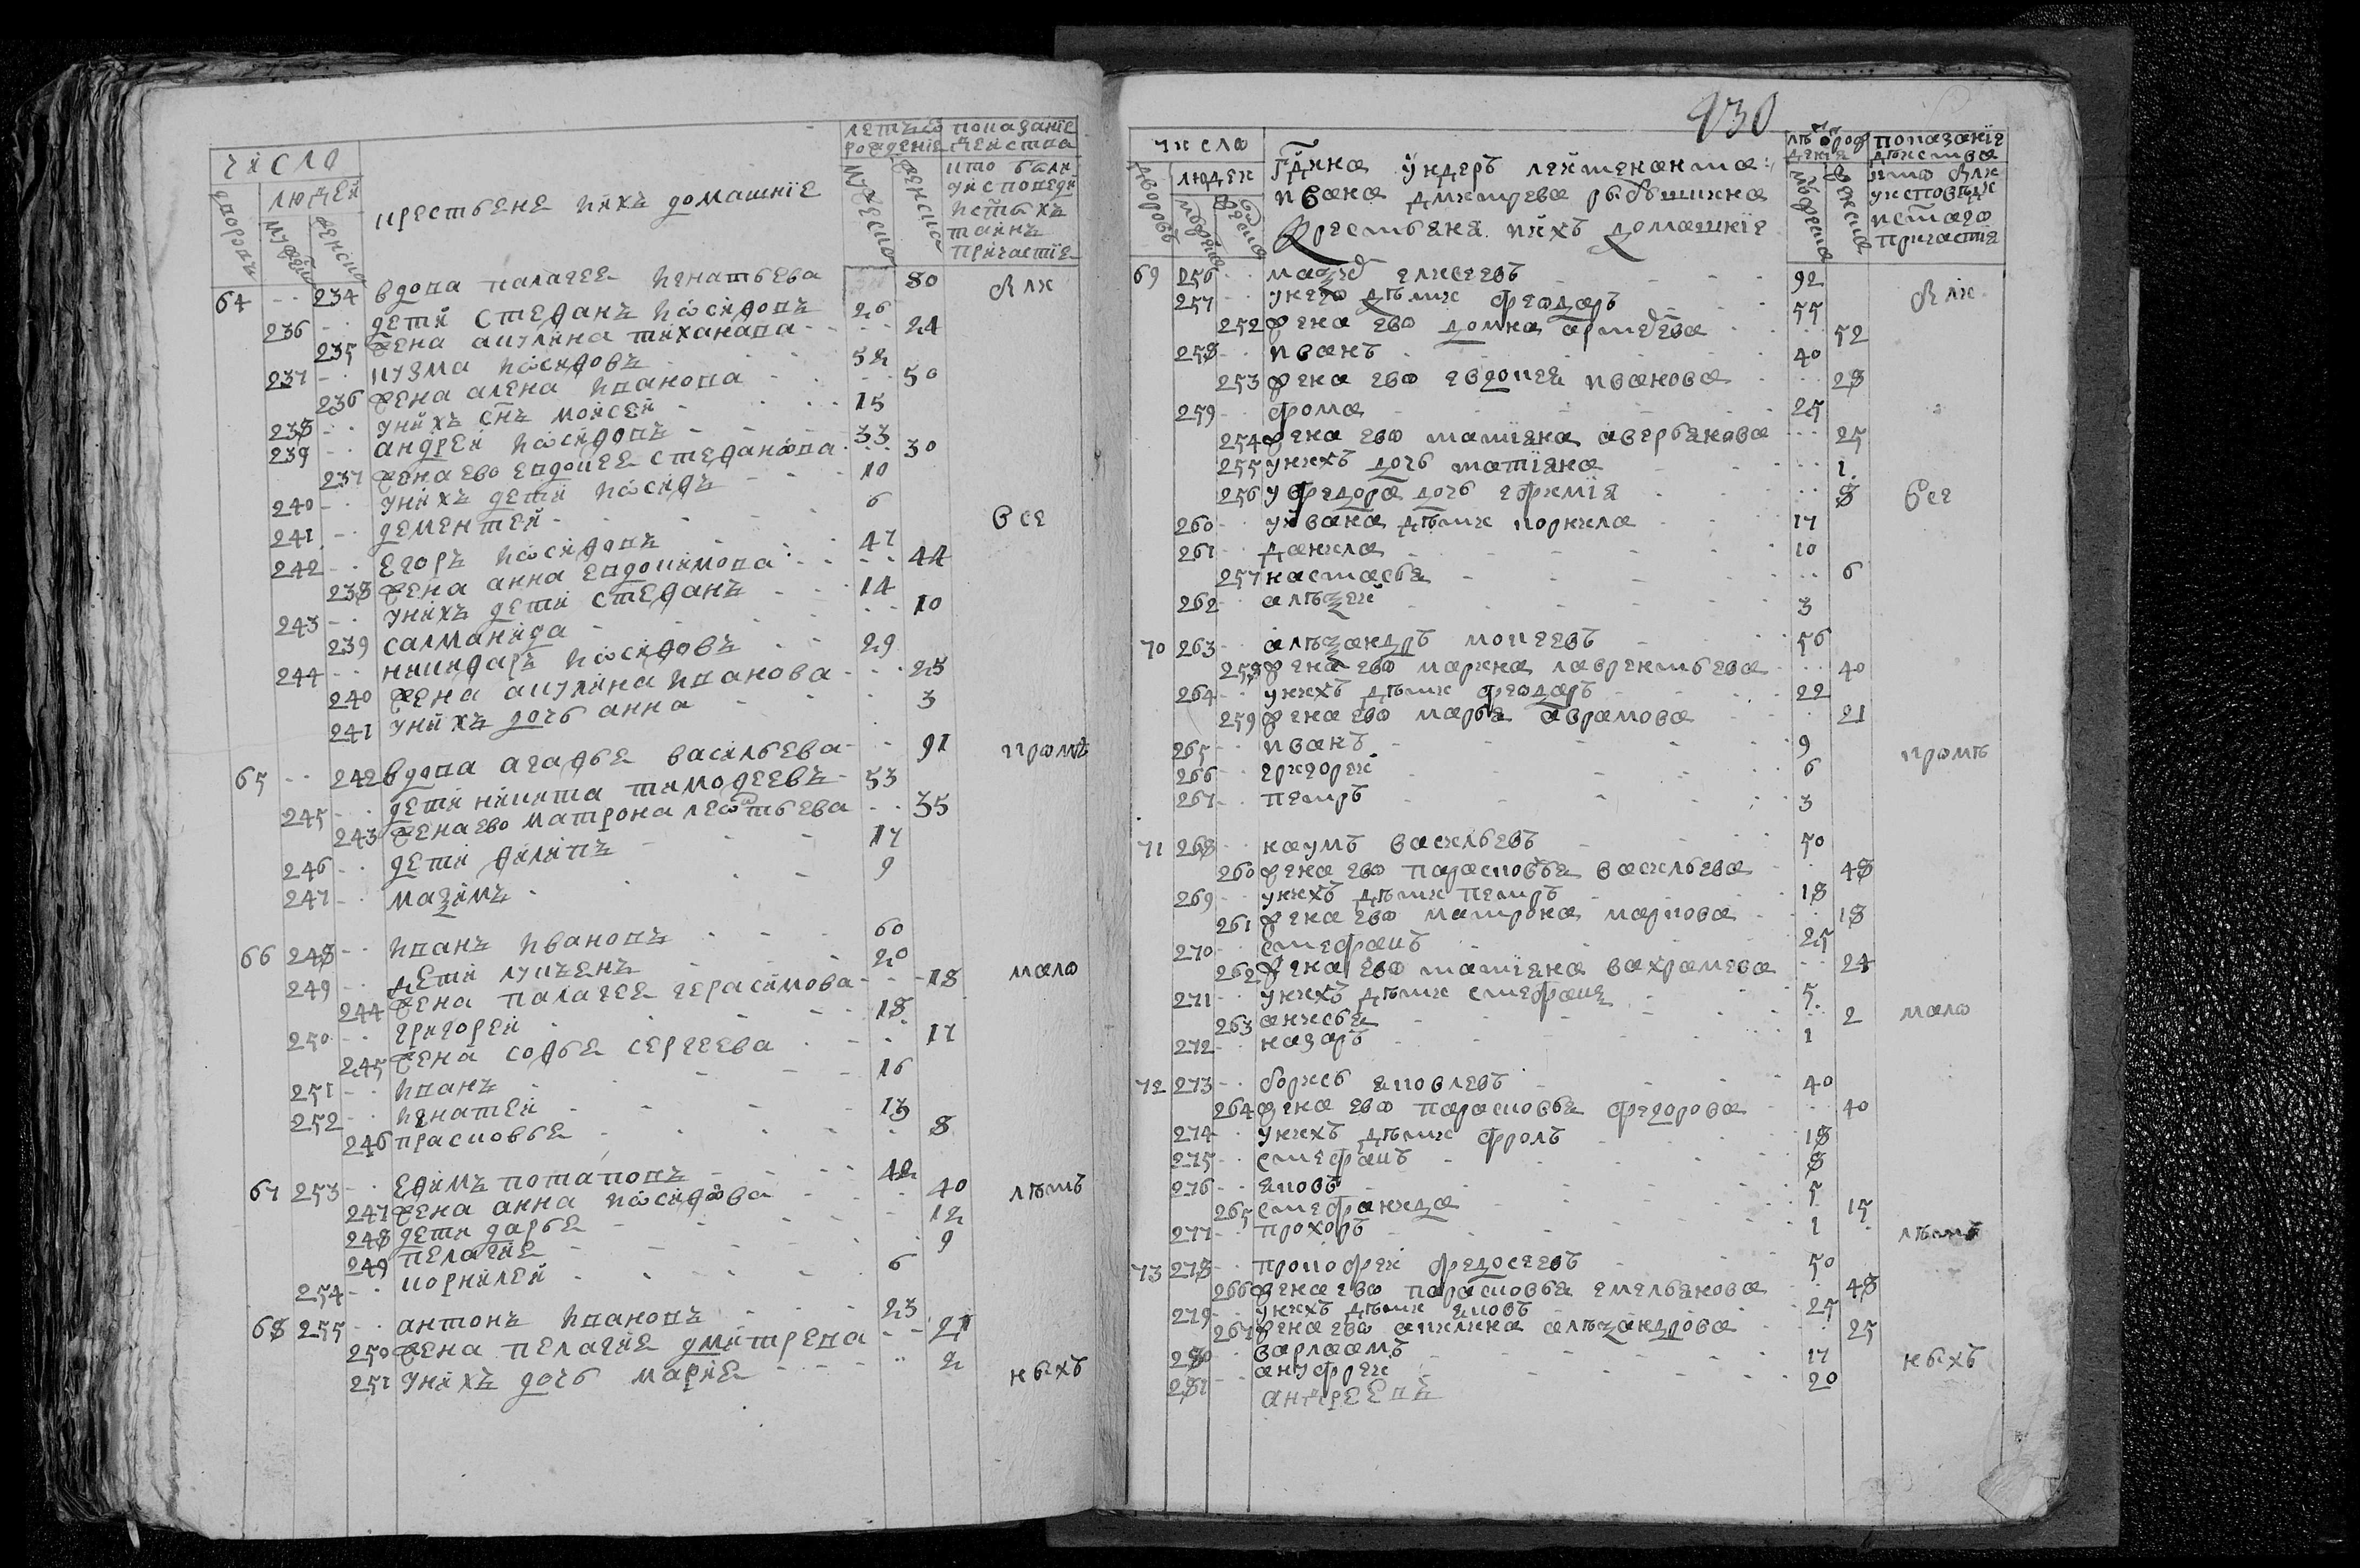 число
людей
дворовъ
мужеска
женска
крестьяне ихъ домашніе
летъ ѿ рожденіе
мужеско
женско
показаніе действа
кто были
уисповеди
истыхъ
таинъ
причастіе
64 234 вдова палагея игнатьева 80 были
236 дети стефанъ иосифовъ 26
235 жена акулина тиханава 24
237 кузма иосифовъ 52
236 жена алена иванова 50
238 унихъ снъ моисей 15
239 андрей иосифовъ 33
237 жена ево евдокея стефанова 30
240 унихъ дети иосифъ 10
241 дементей 6 все
242 егоръ иосифовъ 47
238 жена анна евдокимова 44
243 унихъ дети стефанъ 14
239 салманида 10
244 никифаръ иосифовъ 29
240 жена акулина иванова 25
241 унихъ дочь анна 3
65 242 вдова агафья васильева 91 кромѣ
245 дети никита тимофеевъ 53
243 жена ево матрона леѡтьева 35
246 дети филипъ 17
247 маѯимъ 9
66 248 иванъ ивановъ 60
249 дети лукъенъ 20 мало
244 жена палагея герасимова 18
250 григорей 18
245 жена софья сергеева 17
251 иванъ 16
252 игнатей 13
246 прасковья 8
67 253 ефимъ потаповъ 42
247 жена анна иосифова 40 лѣтъ
248 дети дарья 12
249 пелагия 9
254 корнилей 6
68 255 антонъ ивановъ 23
250 жена пелагия дмитрева 21
251 унихъ дочь мария 2 ныхъ
930
число
людей
дворовъ
мужеска
женска
Гдина ундеръ лейтенанта
ивана дмитрева рыбушкина
Крестьяна ихъ домашніе
лѣ ѿ рож
денія
мужеска
женска
показанія
дѣиства
кто были
уисповѣди
истаго
причастия
69 256 маѯ елисеевъ 92 были
257 унего дѣти феодаръ 55
252 жена ево домна артемева 52
258 иванъ 40
253 жена ево евдокея иванова 28
259 фома 25
254 жена ево татіяна аверьянова 25
255 унихъ дочь татіяна 1
256 уфедора дочь ефимія 8 все
260 уивана дѣти корнила 17
261 данила 10
257 настасья 6
262 алѣѯей 3
70 263 алѣѯандръ мокеевъ 56
258 жена ево марина лаврентьева 40
264 унихъ дѣти феодаръ 22
259 жена ево марья аврамова 21
265 иванъ 9 кромѣ
266 григорей 6
267 петръ 3
71 268 наумъ васильевъ 50
260 жена ево парасковья васильева 48
269 унихъ дѣти петръ 18
261 жена ево матрона маркова 18
270 стефанъ 25
262 жена ево татіяна вахрамева 24
271 унихъ дѣти стефанъ 5
263 анисья 2 мало
272 назаръ 1
72 273 борисъ яковлевъ 40
264 жена ево парасковья федорова 40
274 унихъ дѣти фролъ 18
275 стефанъ 8
276 яковъ 5
265 стефанида 15
277 прохоръ 1 лѣтъ
73 278 прокофеи федосеевъ 50
266 жена ево парасковья емельянова 48
279 унихъ дѣти яковъ 25
267 жена ево акилина алѣѯандрова 25
280 варлаамъ 17 ныхъ
281 ануфреи 20
андреевъ